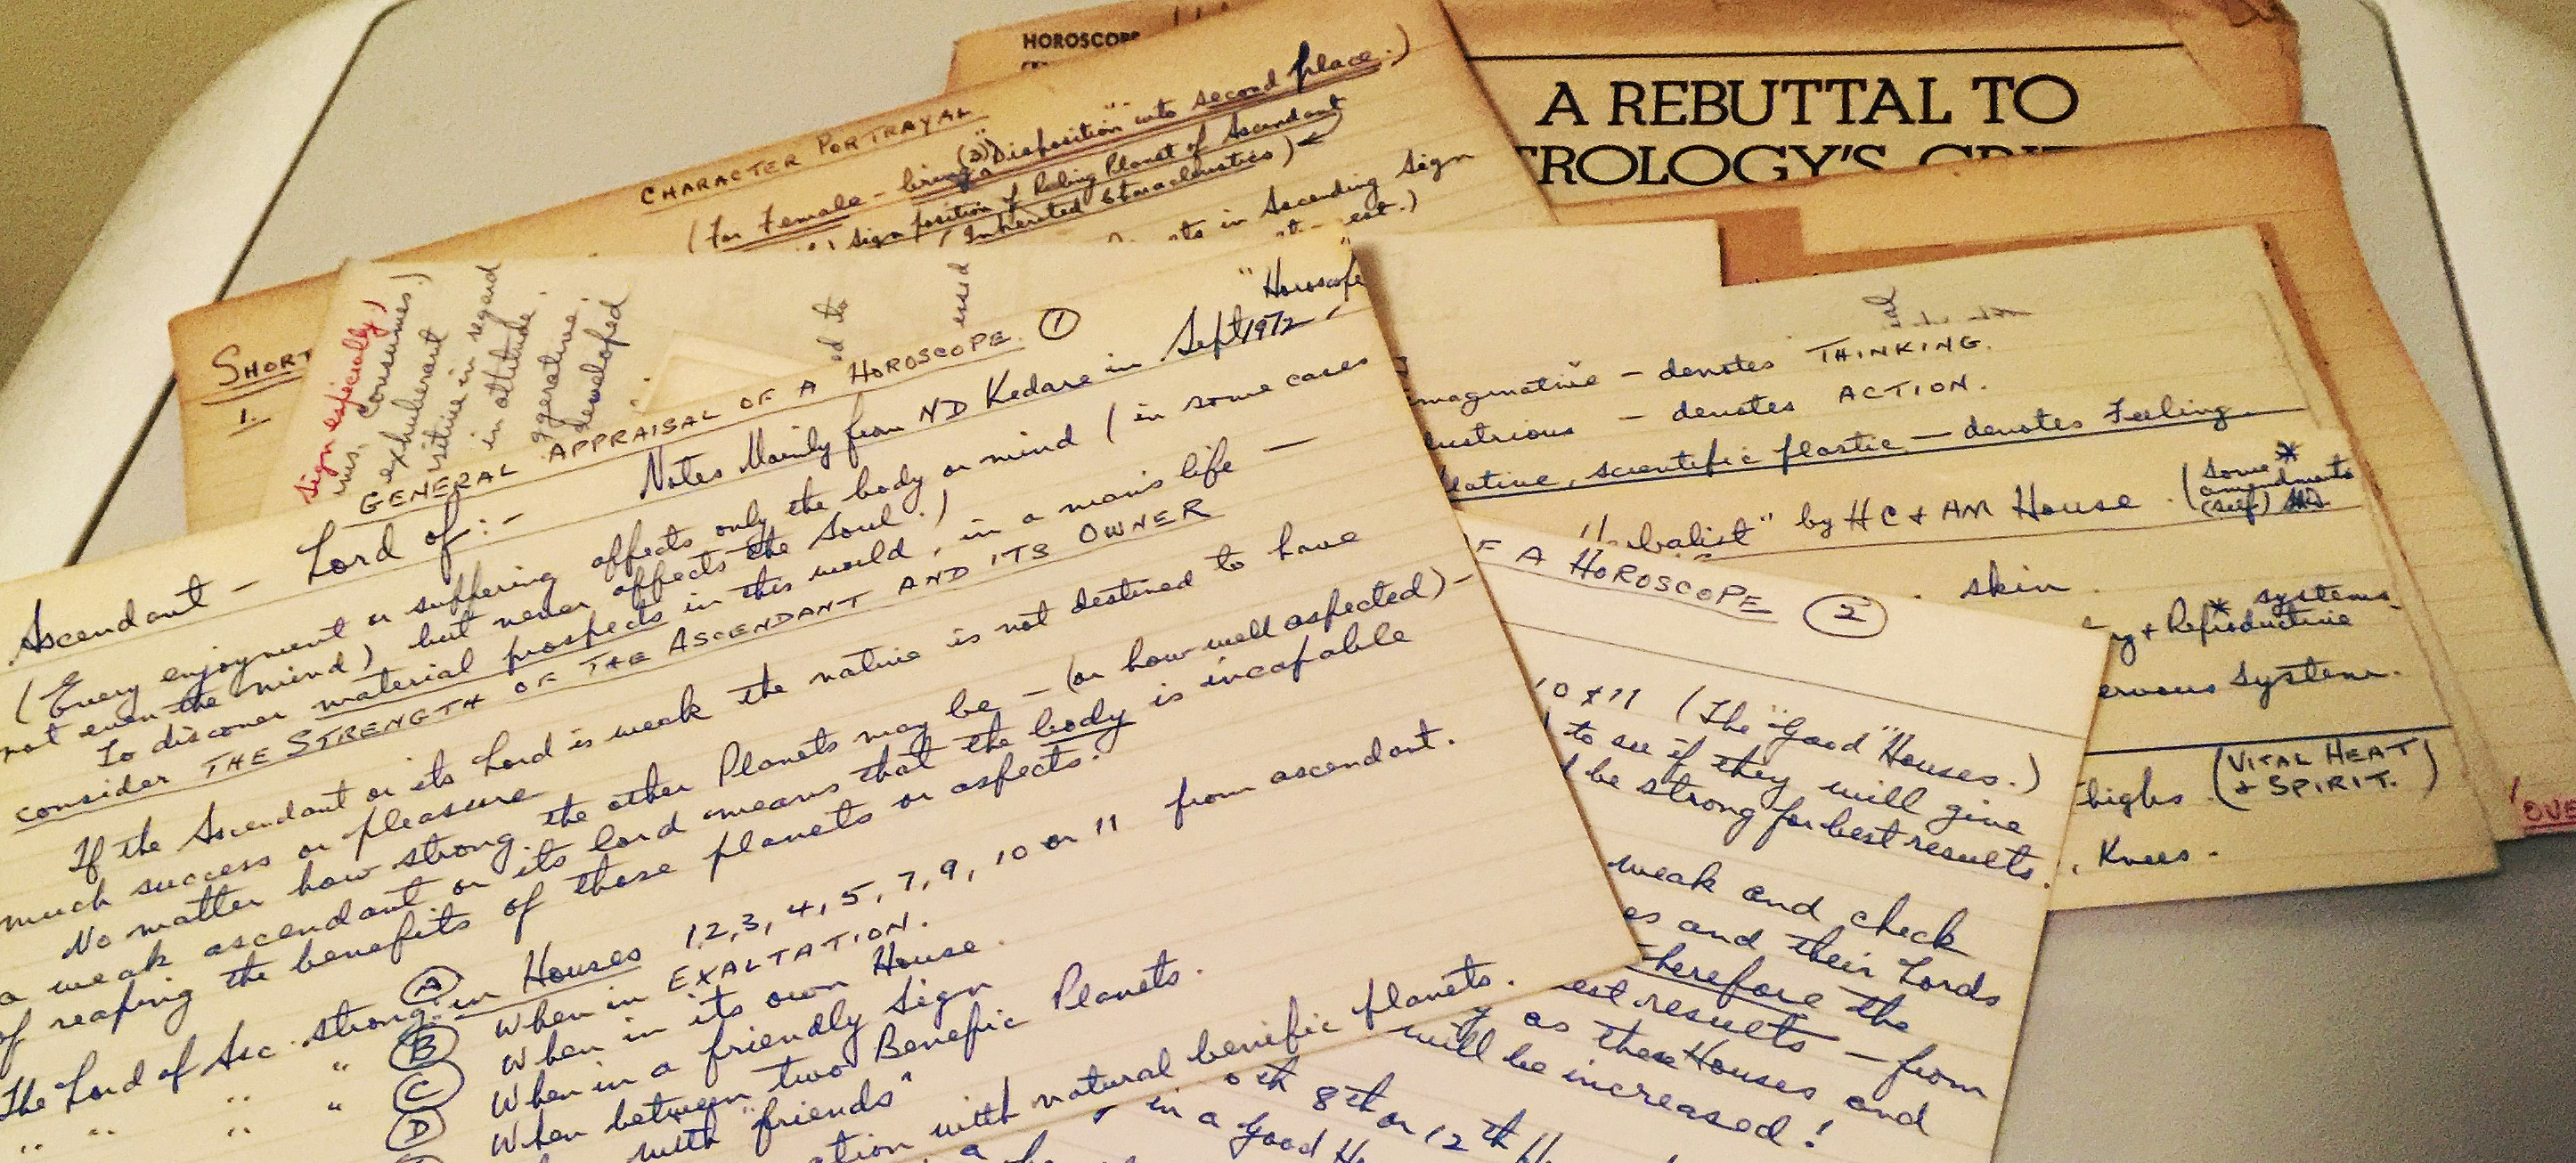 HOROSCOPE
A REBUTTAL TO
TROLOGY'S CRIT
CHARACTER PORTRAYAL
(For Female - bring "Disposition" into second place.)
(3)
sign position of Ruling Planet of Ascendant
(Inherited Characteristics)
in Ascending Sign
est.)
SHORT
1.
sign especially)
consumes.)
exhuberant
sitive in regard
in attitude.
ggerative.
developed
ed to
used
GENERAL APPRAISAL OF A HOROSCOPE. 1
"Horoscope"
Notes Mainly from ND Kedare in Sept 1972 -
Ascendant - Lord of:-
(Every enjoyment or suffering affects only the body or mind (in some cases
not even the mind) but never affects the Soul.)
To discover material prospects in this world, in a man's life -
consider THE STRENGTH OF THE ASCENDANT AND ITS OWNER
If the Ascendant or its Lord is weak the native is not destined to have
much success or pleasure
No matter how strong the other Planets may be - (or how well aspected) -
a weak ascendant or its lord means that the body is incapable
of reaping the benefits of those planets or aspects.
The Lord of Asc. strong: A in Houses 1, 2, 3, 4, 5, 7, 9, 10 or 11 from ascendant.
" B When in EXALTATION.
" " " C When in its own House.
" " " D When in a friendly Sign
When between two Benefic Planets.
with "friends"
ation with natural benefic planets.
8th or 12th
in a good
maginative - denotes THINKING.
ustrious - denotes ACTION.
eative, scientific plastic - denotes Feeling.
balist" by HC & AM House. (Some * amendments (self)
skin
* systems.
+ Reproductive
ervous System.
thighs. (VITAL HEAT
+ SPIRIT.)
Knees.
OVE
F A HOROSCOPE 2
10 & 11 (The "Good" Houses.)
to see if they will give
be strong for best results.
weak and check
es and their Lords
Therefore the
est results - from
as these Houses and
will be increased!